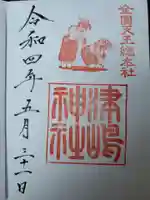 全國天王総本社
津嶋
神社
令和四年五月三十一日